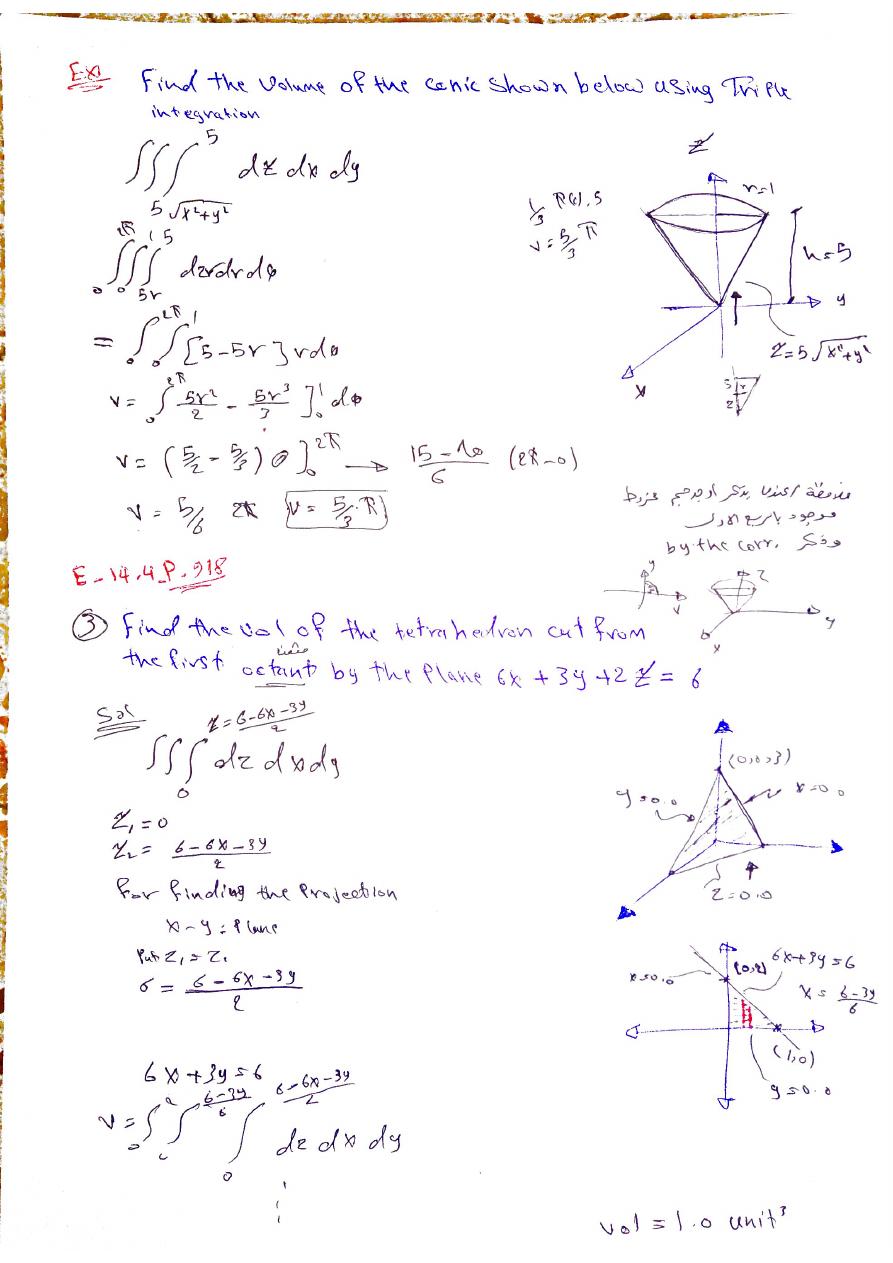 Ex1 Find the volume of the conic shown below using Triple
integration
∫∫∫_{5√x²+y²}^{5} dz dx dy
∫_0^{2π}∫_0^1∫_{5r}^5 dz r dr dθ
= ∫_0^{2π}∫_0^1 [5-5r] r dθ
v= ∫_0^{2π} 5r²/2 - 5r³/3 ]_0^1 dθ
v= (5/2 - 5/3) θ ]_0^{2π} → 15-10/6 (2π-0)
v= 5/6 2π v= 5/3.π
1/3 π(1).5
v= 5/3 π
z
r=1
h=5
y
z=5√x²+y²
x
5
r
z
by the corr. وذكر
y
x
z
y
x
E-14.4-P.918
3 Find the vol of the tetrahedron cut from
the first octant by the Plane 6x+3y+2z=6
Sol
∫∫∫_0^{z=6-6x-3y/2} dz dx dy
z₁=0
z₂= 6-6x-3y/2
for finding the Projection
x-y: Plane
Put z₁=z₂
0= 6-6x-3y/2
6x+3y=6
v= ∫_0^2∫_0^{6-3y/6}∫_0^{6-6x-3y/2} dz dx dy
(0,0,3)
y=0.0
x=0.0
z=0.0
x=0.0
(0,2)
6x+3y=6
x= 6-3y/6
(1,0)
y=0.0
vol = 1.0 unit³